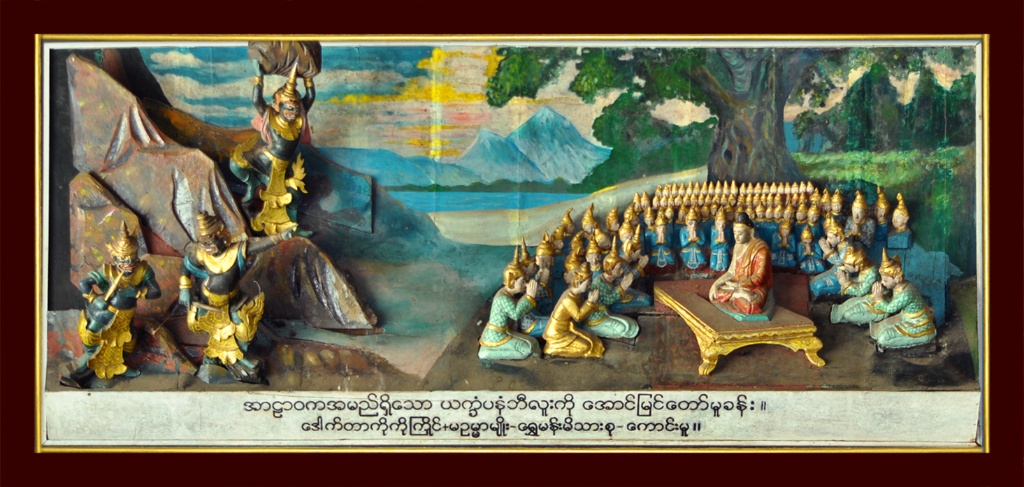 အာဠာဝကအမည်ရှိသော ယက္ခံပနံဘီလူးကို အောင်မြင်တော်မူခန်း ။
ဒေါက်တာကိုကိုကြိုင်+မဥမ္မာမျိုး-ရွှေမန်းမိသားစု-ကောင်းမှု ။